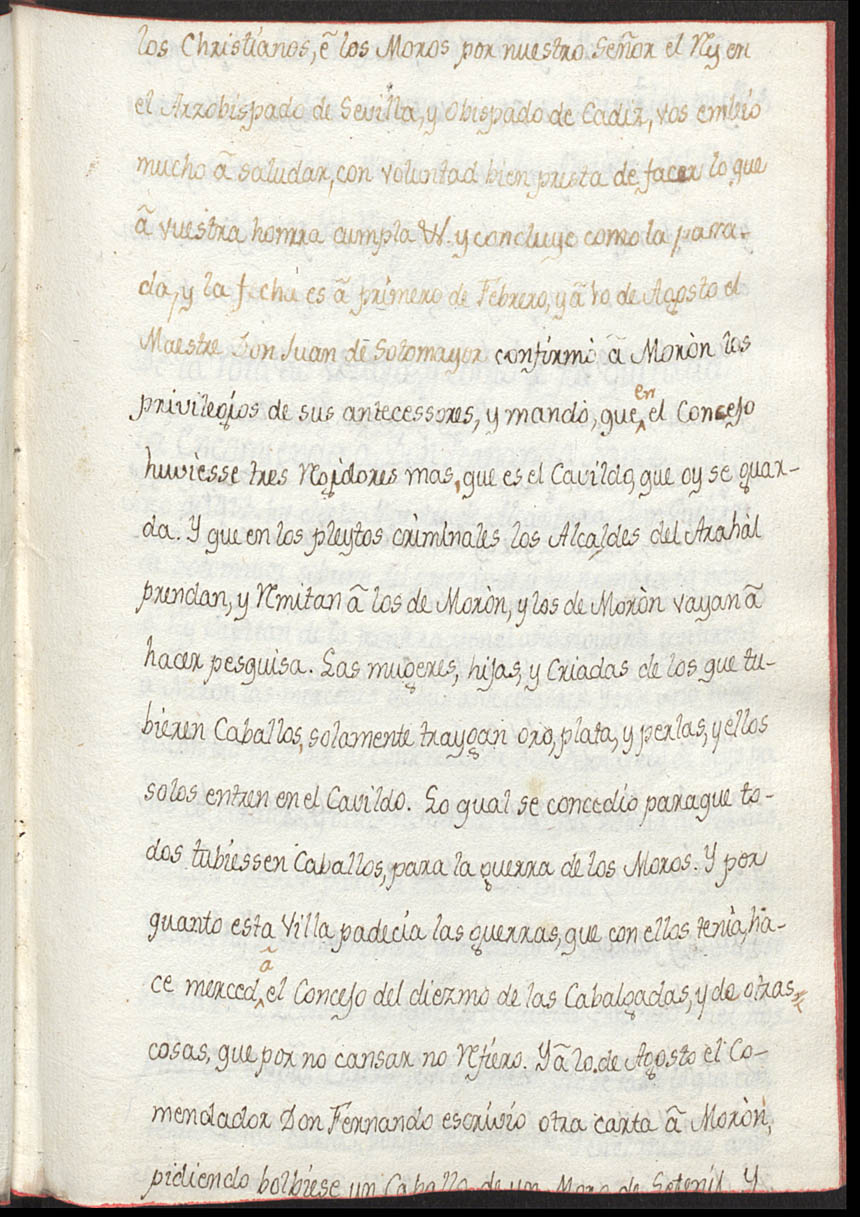 los Christianos, ẽ los Moros por nuestro Señor el Ry en
el Arzobispado de Sevilla, y Obispado de Cadiz, vos embio
mucho ã saludar, con voluntad bien presta de facer lo que
ã vuestra honrra cumpla &. y concluye como la passa-
da, y la fecha es ã primero de Febrero, y ã 10 de Agosto el
Maestre Don Juan de Sotomayor confirmò ã Moròn los
privilegios de sus antecessores, y mandò, que en el Concejo
huviesse tres Rgidores mas, que es el Cavildo, que oy se guar-
da. Y que en los pleytos criminales los Alcaldes del Arahàl
prendan, y Rmitan ã los de Moròn, y los de Moròn vayan ã
hacer pesquisa. Las mugeres, hijas, y Criadas de los que tu-
bieren Caballos, solamente traygan oro, plata, y perlas, y ellos
solos entren en el Cavildo. Lo qual se concediò para que to-
dos tubiessen Caballos, para la guerra de los Moros. Y por
quanto esta Villa padecia las guerras, que con ellos tenia, ha-
ce merced ã el Concejo del diezmo de las Cabalgadas, y de otras
cosas, que por no cansar no Rfiero. Y ã 10. de Agosto el Co-
mendador Don Fernando escriviò otra carta ã Moròn,
pidiendo bolbiese un Caballo de un Moro de Setenil. Y